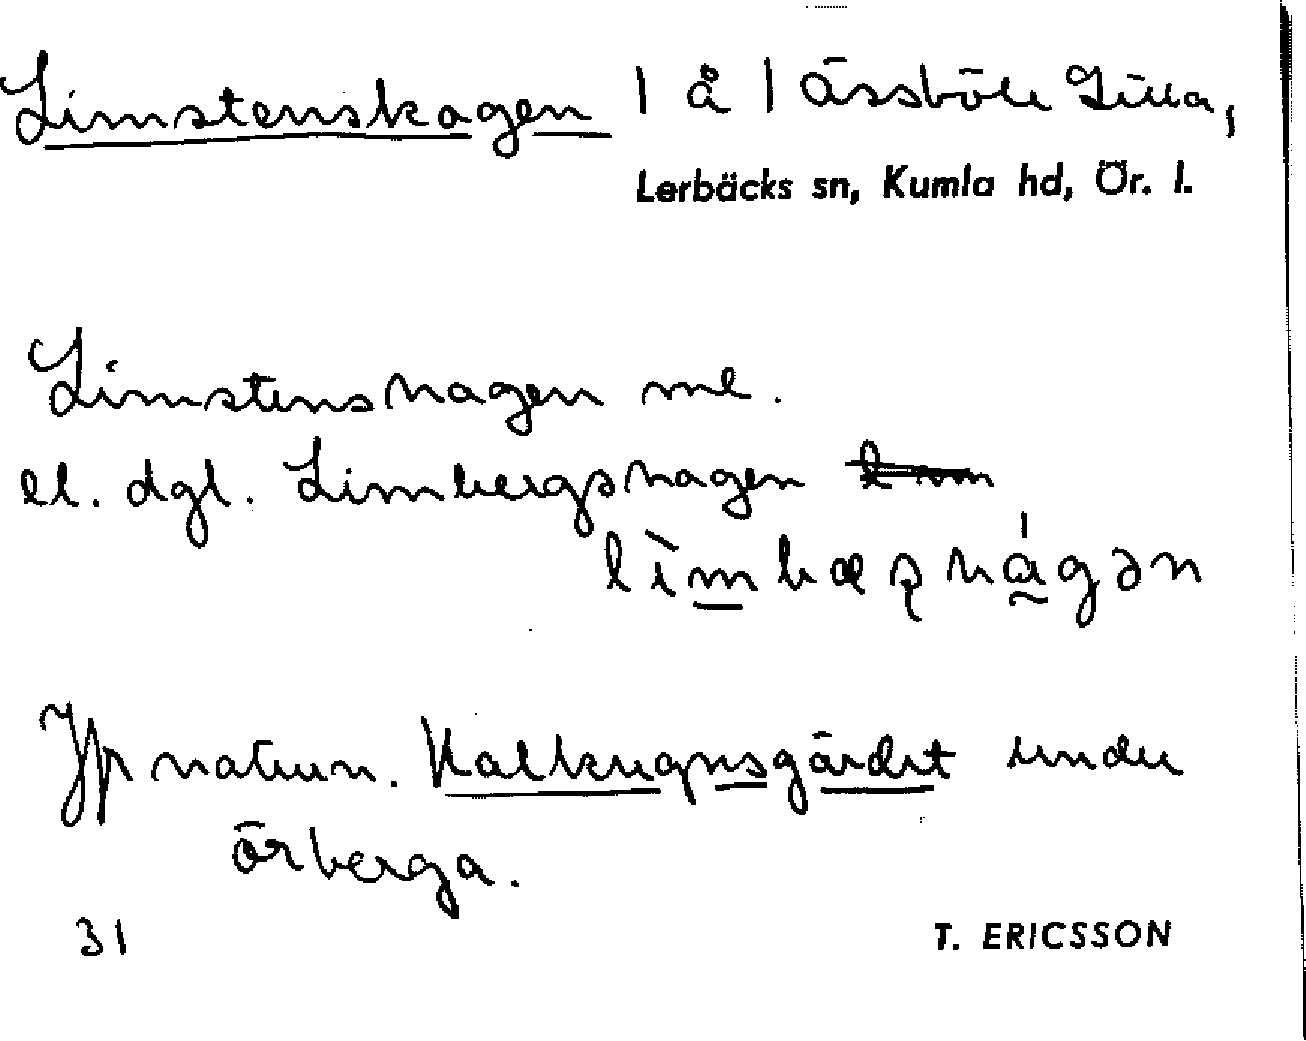 Limstenskagen | å | Ässböle Lilla,
Lerbäcks sn, Kumla hd, Ör. l.
Limstenshagen ml.
el. dgl. Limbergshagen
lìmbæʂhágən
Jfr naturn. Kalkugnsgärdet under
Örberga.
31 T. ERICSSON